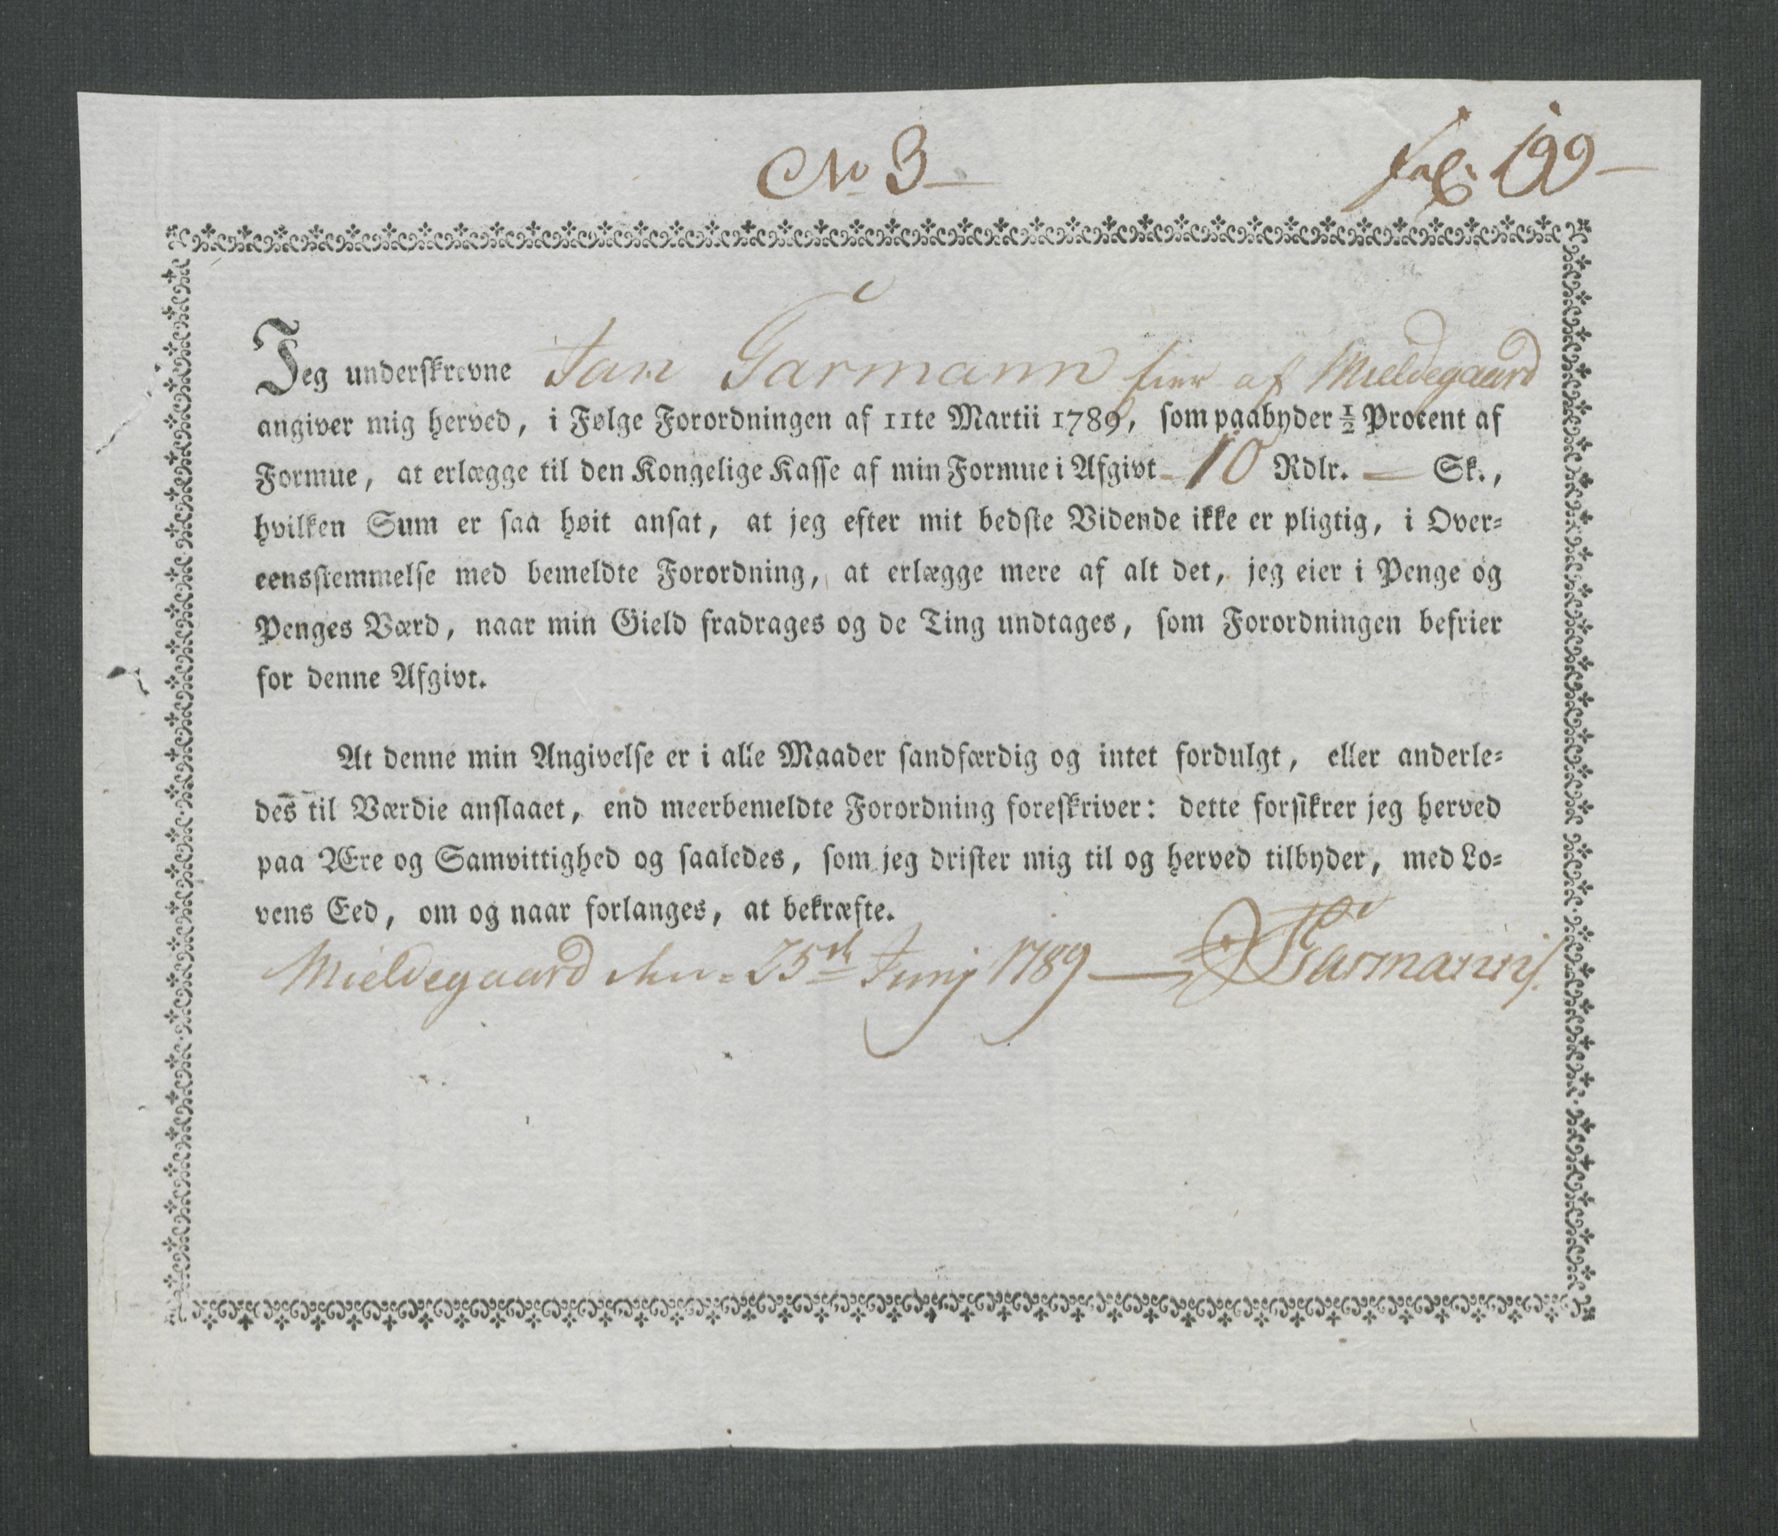 No 3
fol. 199
Jeg underskrevne Jan Garmann Eier af Mieldegaard
angiver mig herved, i Følge Forordningen af 11te Martii 1789, som paabyder ½ Procent af
Formue, at erlægge til den Kongelige Kasse af min Formue i Afgivt 10 Rdlr. — Sk.,
hvilken Sum er saa høit ansat, at jeg efter mit bedste Vidende ikke er pligtig, i Over-
eensstemmelse med bemeldte Forordning, at erlægge mere af alt det, jeg eier i Penge og
Penges Værd, naar min Gield fradrages og de Ting undtages, som Forordningen befrier
for denne Afgivt.
At denne min Angivelse er i alle Maader sandfærdig og intet fordulgt, eller anderle-
des til Værdie anslaaet, end meerbemeldte Forordning foreskriver: dette forsikrer jeg herved
paa Ære og Samvittighed og saaledes, som jeg drister mig til og herved tilbyder, med Lo-
vens Eed, om og naar forlanges, at bekræfte.
Mieldegaard den 25de Junij 1789 — Garmann